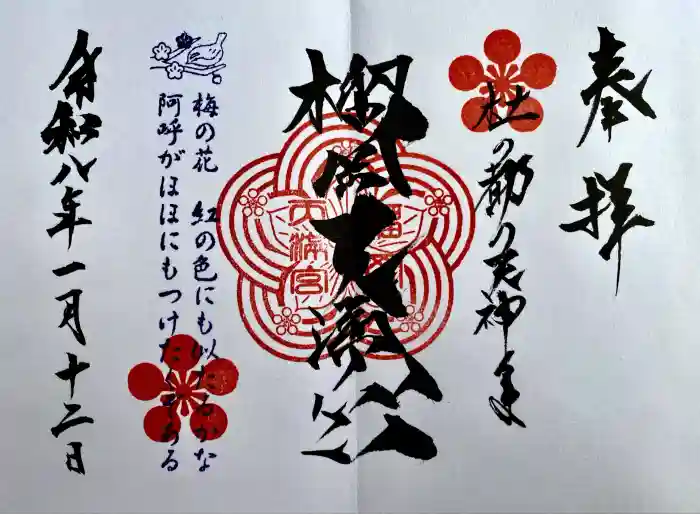 奉拝
杜の都の天神さま
榴岡天満宮
榴岡
天満宮
梅の花 紅の色にも似たるかな
阿呼がほほにもつけたくぞある
令和八年一月十二日